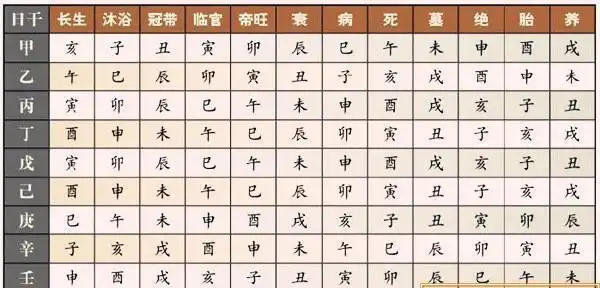 日干 长生 沐浴 冠带 临官 帝旺 衰 病 死 墓 绝 胎 养
甲 亥 子 丑 寅 卯 辰 巳 午 未 申 酉 戌
乙 午 巳 辰 卯 寅 丑 子 亥 戌 酉 申 未
丙 寅 卯 辰 巳 午 未 申 酉 戌 亥 子 丑
丁 酉 申 未 午 巳 辰 卯 寅 丑 子 亥 戌
戊 寅 卯 辰 巳 午 未 申 酉 戌 亥 子 丑
己 酉 申 未 午 巳 辰 卯 寅 丑 子 亥 戌
庚 巳 午 未 申 酉 戌 亥 子 丑 寅 卯 辰
辛 子 亥 戌 酉 申 未 午 巳 辰 卯 寅 丑
壬 申 酉 戌 亥 子 丑 寅 卯 辰 巳 午 未